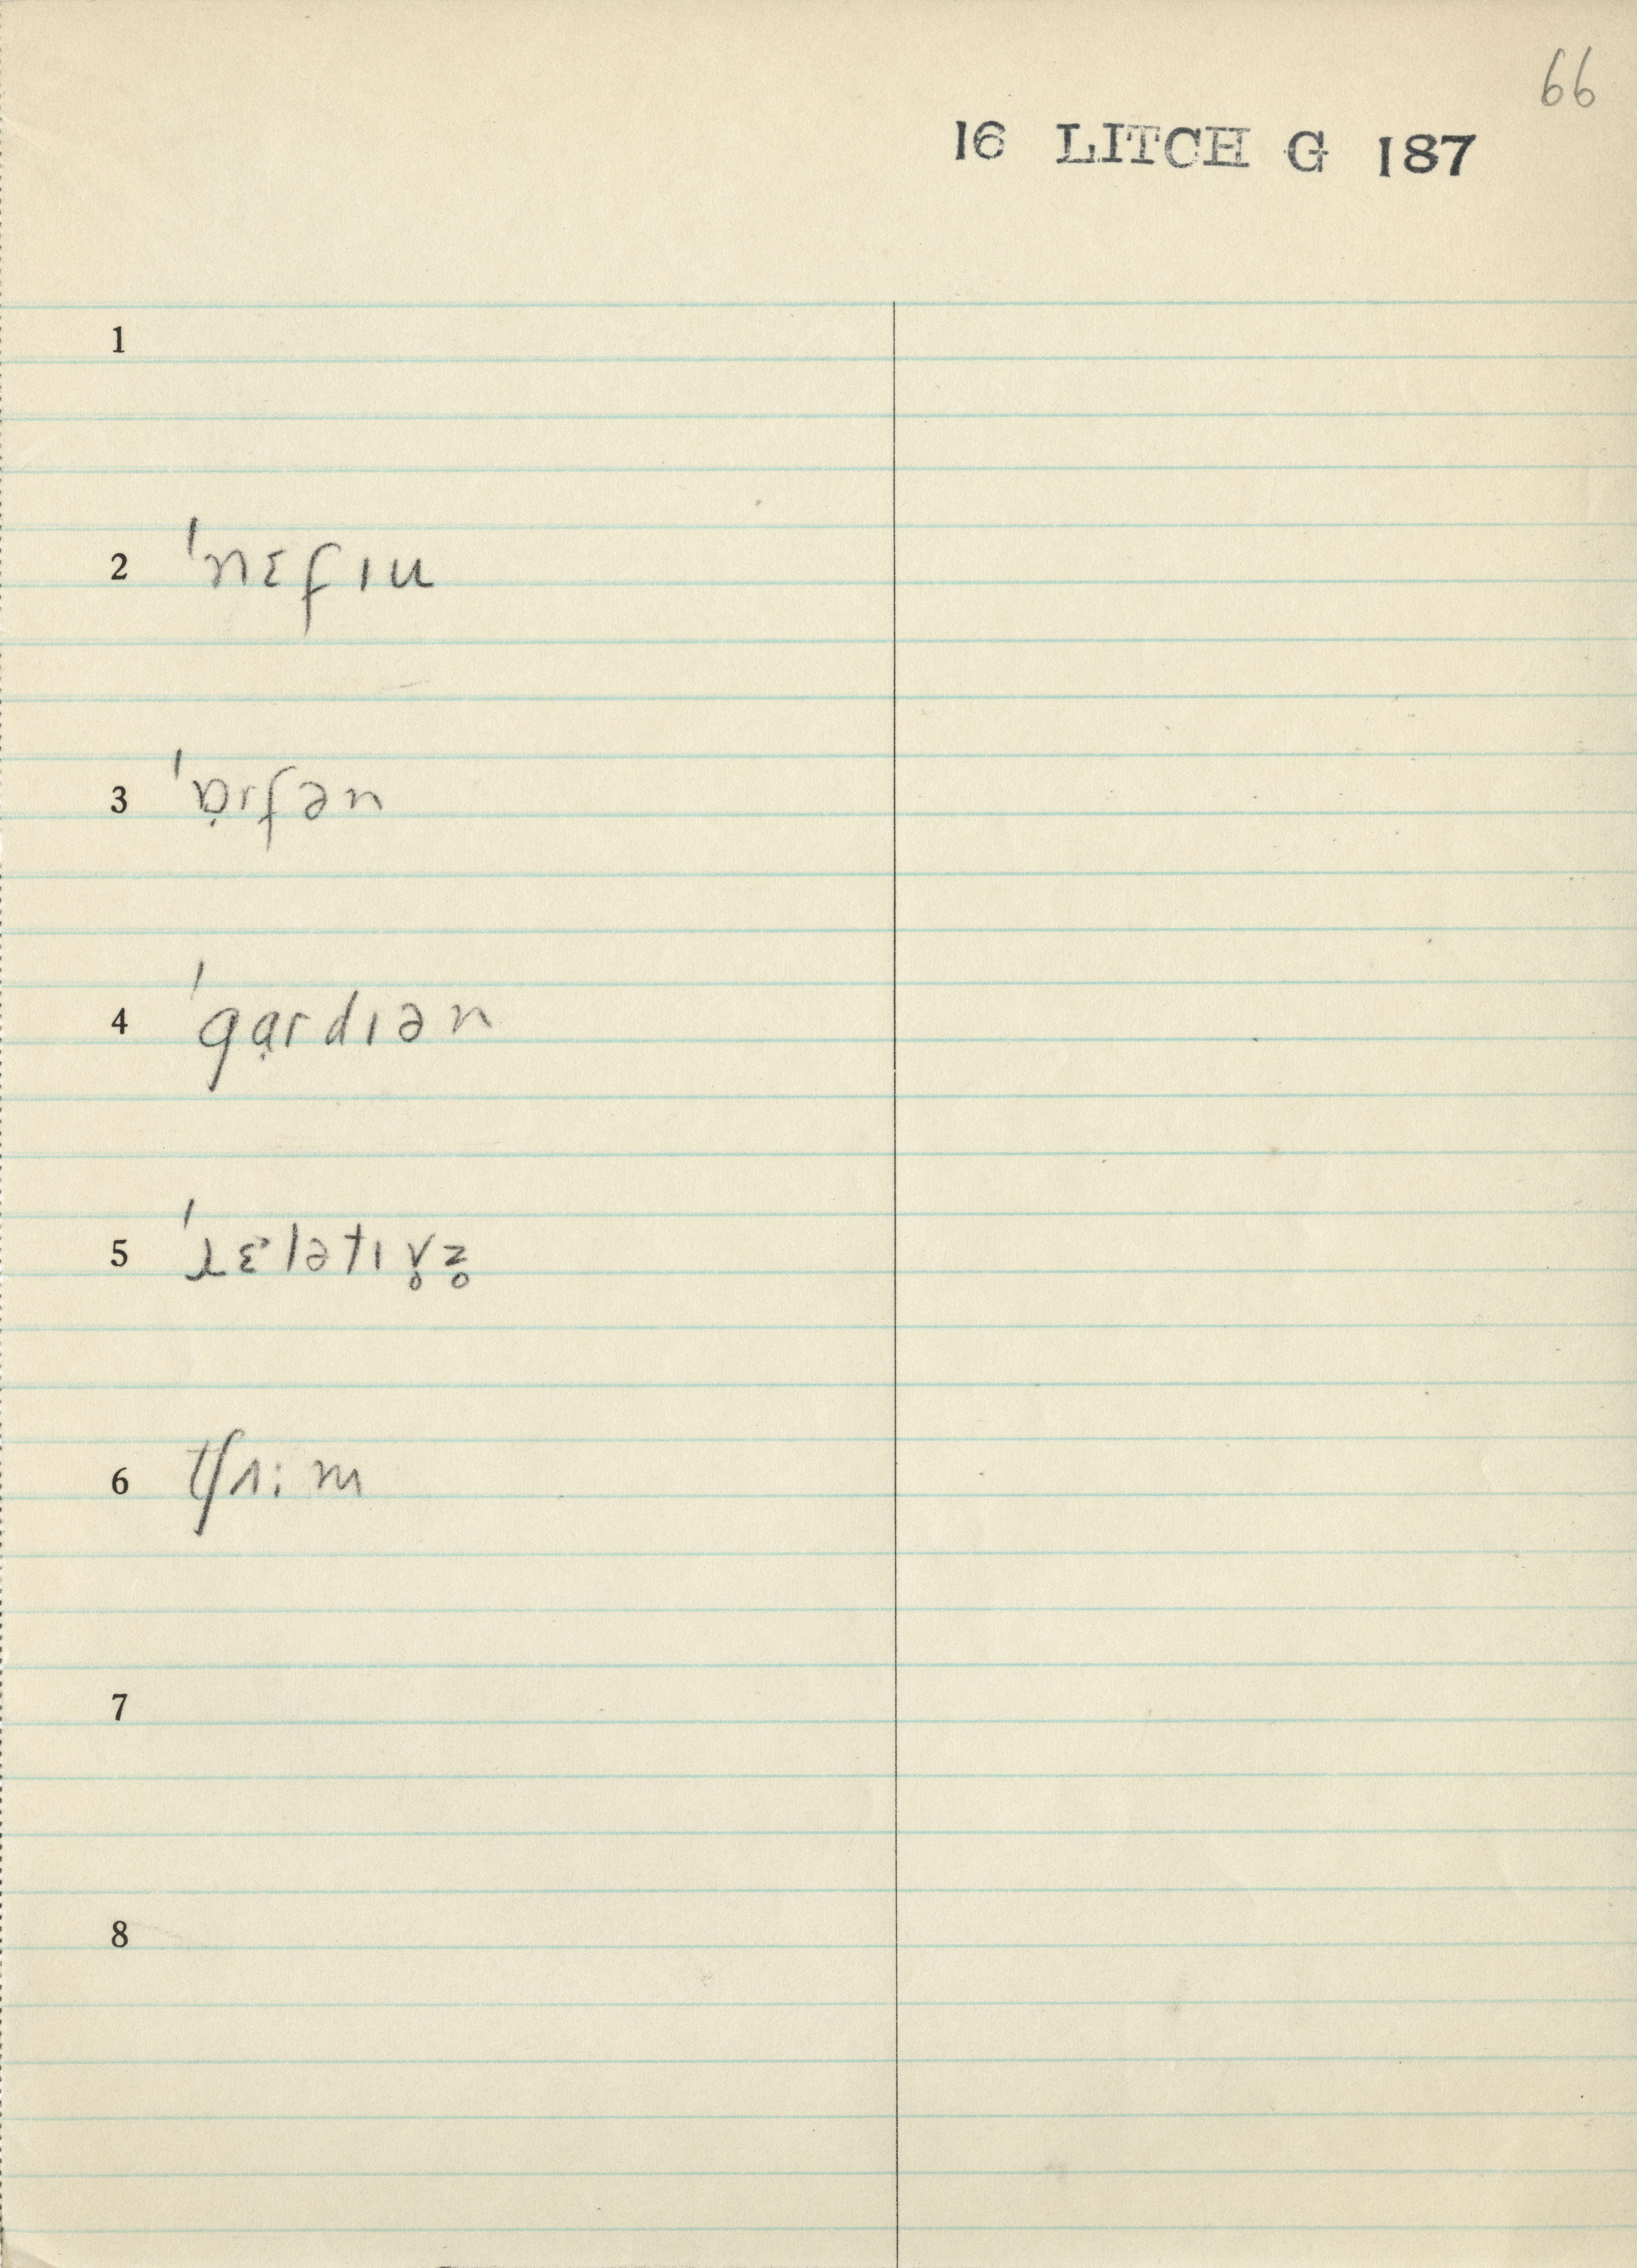 66
16 LITCH G 187
1
2 ˈnɛfɪu
3 ˈɒ̣rfən
4 ˈgɑ̣rdɪən
5 ˈɹɛˑlətɪv̥z̥
6 tʃʌim
7
8